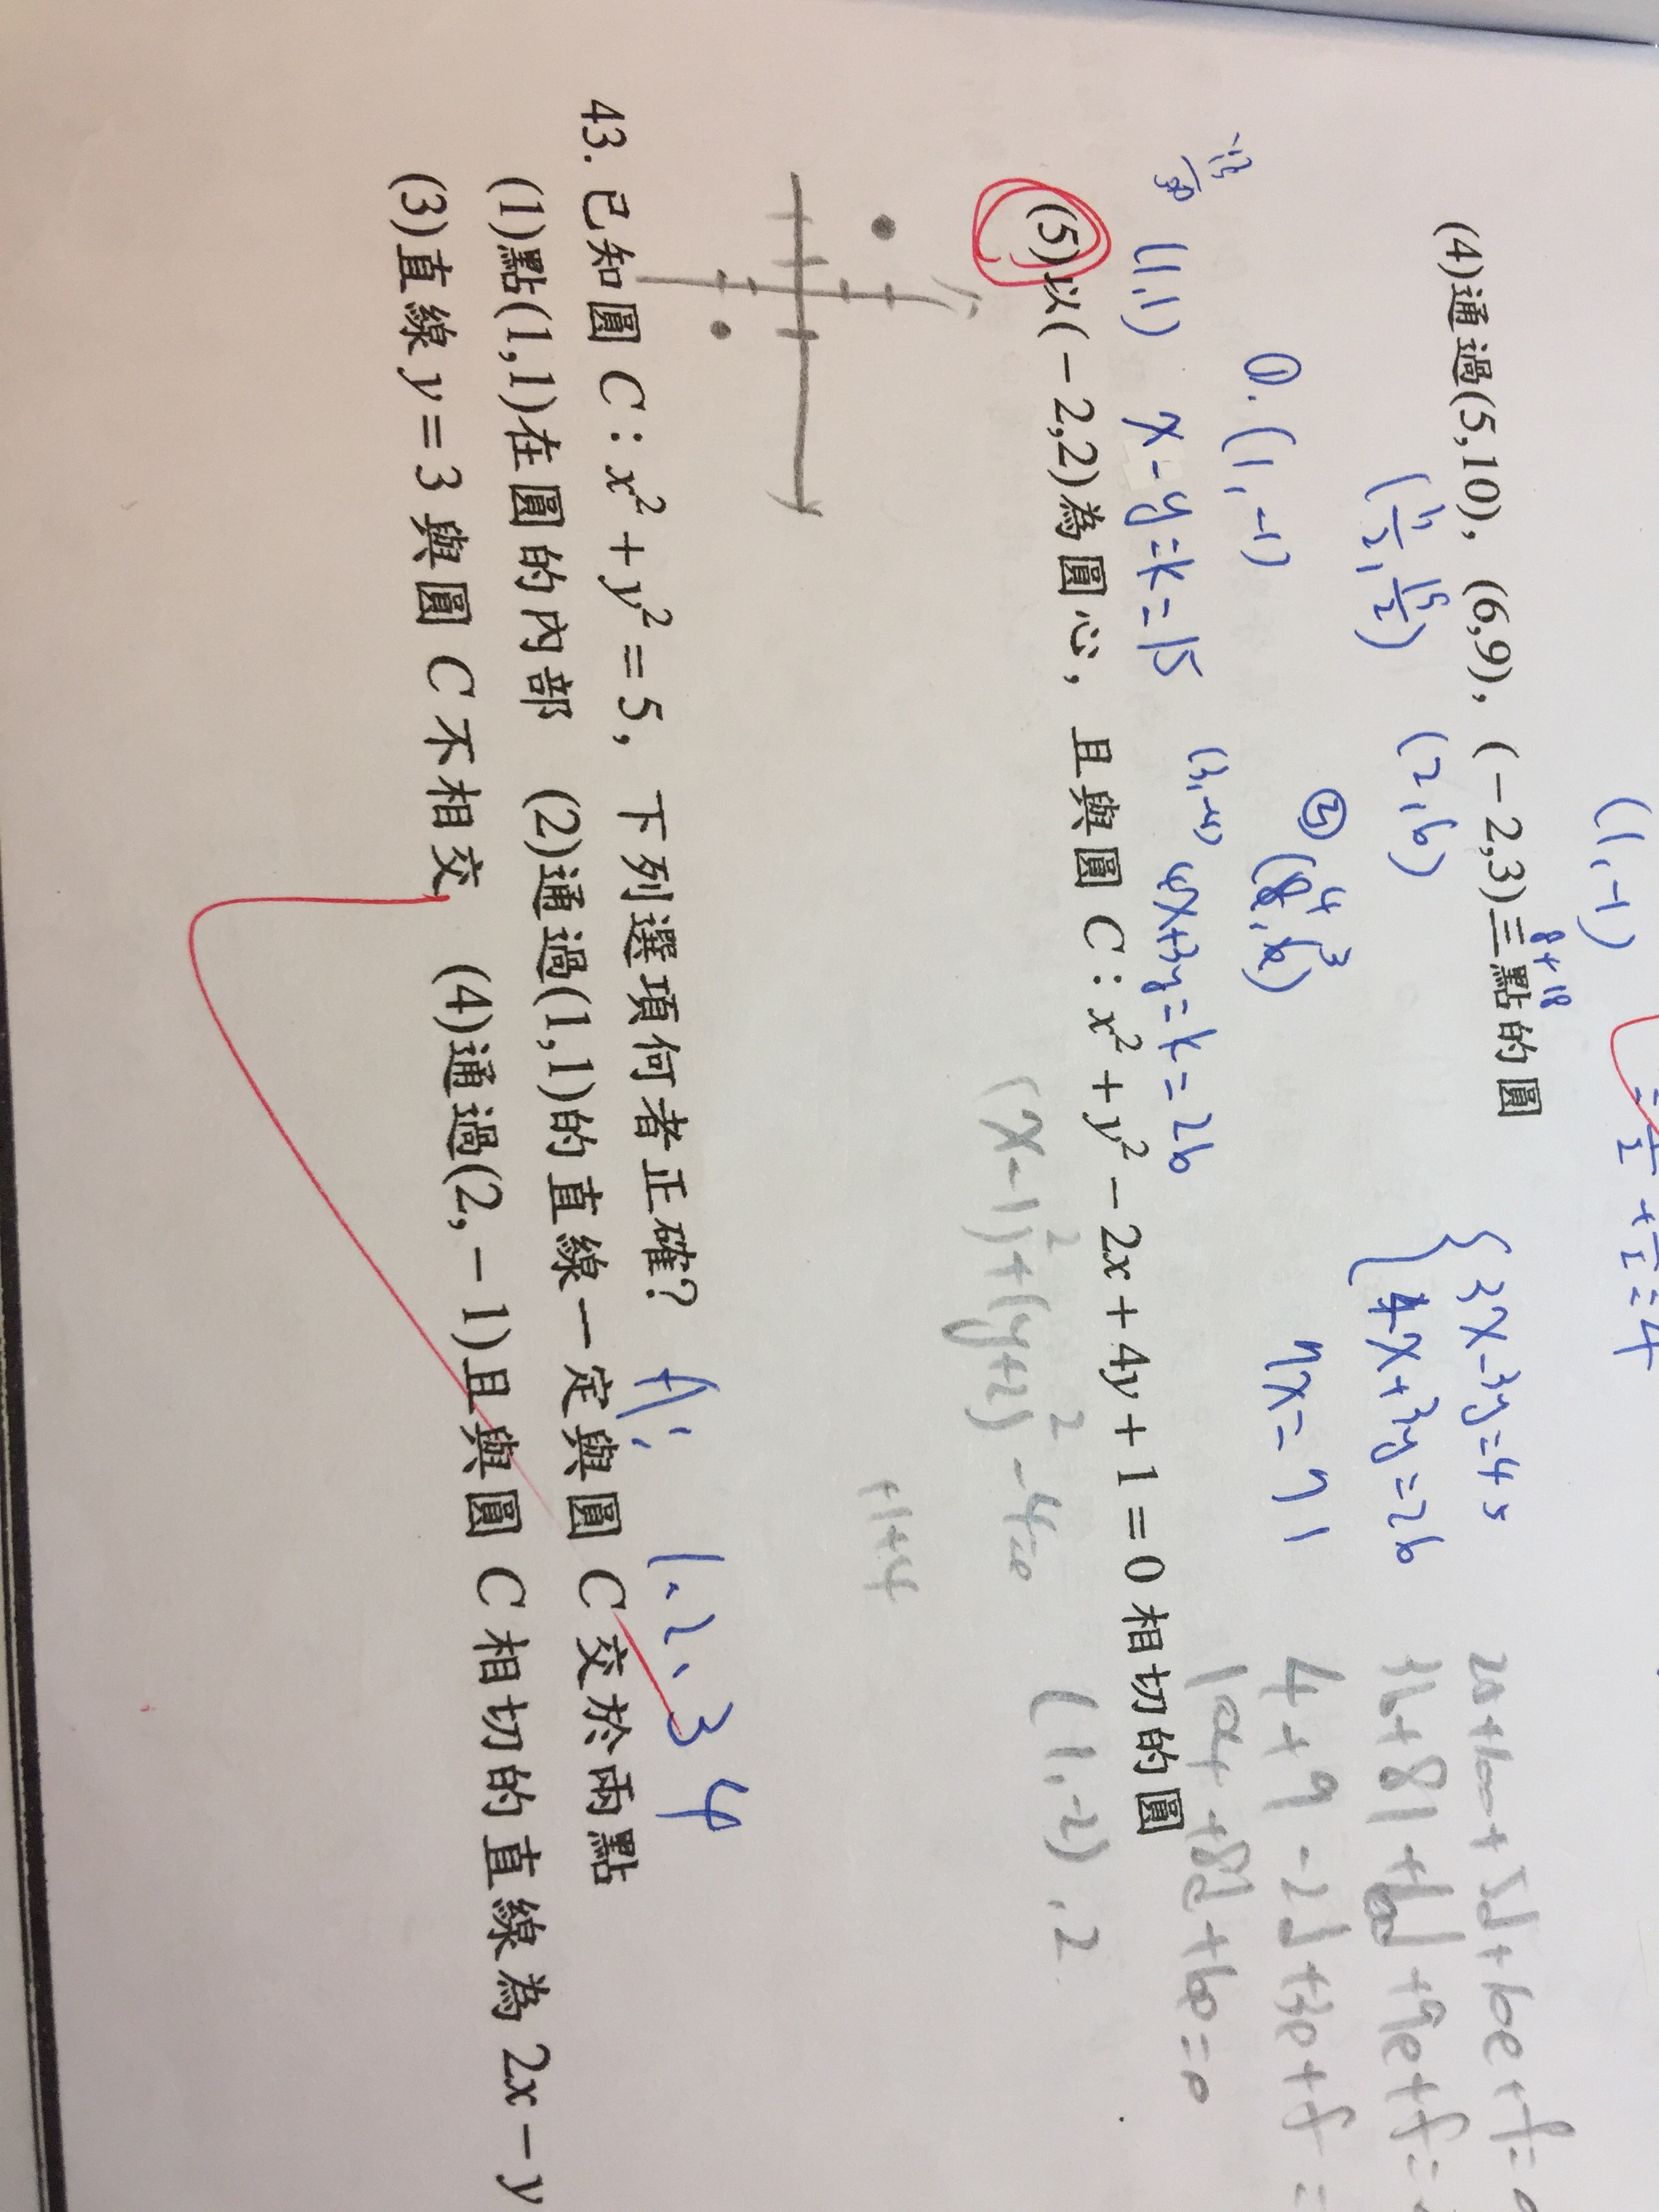 (1,-1)
8+18
(4)通過(5,10), (6,9), (-2,3)三點的圓
(11/2, 15/2) (2,6)
{3x-3y=45
4x+3y=26
7x=71
0.(1,-1)
(1,1) x-y=k=15
4x+3y=k=26
4+9-2d+3e+f=
(5)以(-2,2)為圓心, 且與圓 C:x²+y²-2x+4y+1=0 相切的圓
(x-1)²+(y+2)²-4=0
(1,-2),2
+1+4
43. 已知圓 C:x²+y²=5, 下列選項何者正確?
A: 1.2、3 4
(1)點(1,1)在圓的內部 (2)通過(1,1)的直線一定與圓 C 交於兩點
(3)直線 y=3 與圓 C 不相交 (4)通過(2,-1)且與圓 C 相切的直線為 2x-y